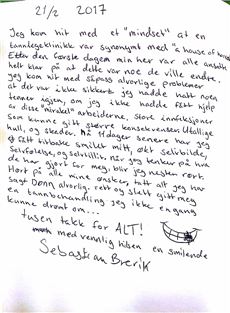 21/2 2017
Jeg kom hit med et "mindset" at en
tannlegeklinikk var synonymt med "a house of
Etter den første dagen min her var alle ansatte
helt klar på at dette var noe de ville endre.
Jeg kom hit med såpass alvorlige problemer
at det var ikke sikkert jeg hadde hatt noen
tenner igjen, om jeg ikke hadde fått hjelp
av disse "mirakel" arbeiderne, store innfeksjoner
som kunne gitt større konsekvenser. Utallige
hull, og skeder. Nå 4 dager senere har jeg
fått tilbake smilet mitt, økt selvbilde,
selvfølelse, og selvtillit. Når jeg tenker på hva
de har gjort for meg, blir jeg nesten rørt.
Hørt på alle mine ønsker, tatt alt jeg har
sagt DØNN alvorlig, rett og slett gitt meg
en tannbehandling jeg ikke engang
kunne drømt om...
tusen takk for ALT!
med vennlig hilsen en smilende
Sebastian Brevik